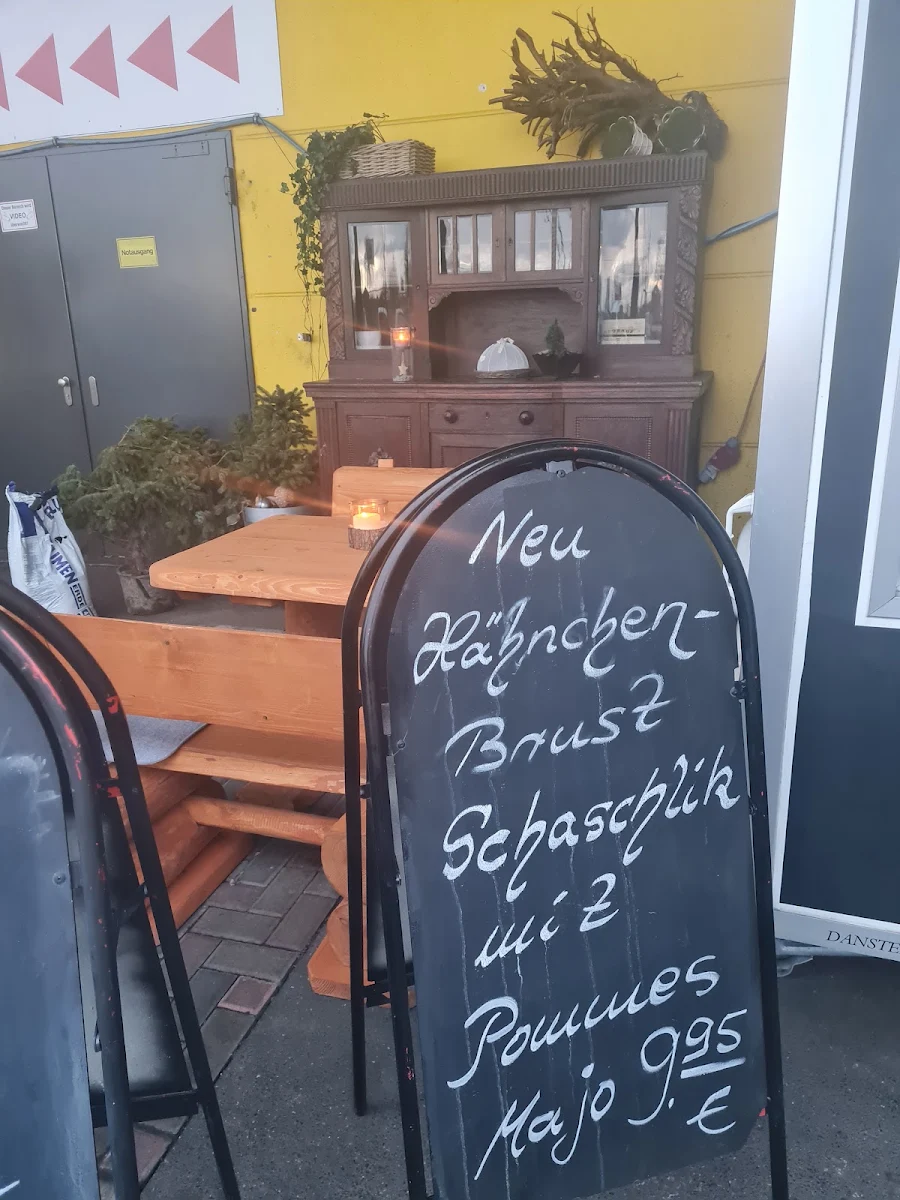 VIDEO
Notausgang
Neu
Hähnchen-
Brust
Schaschlik
mit
Pommes
Majo 9.95
€
DANSTE